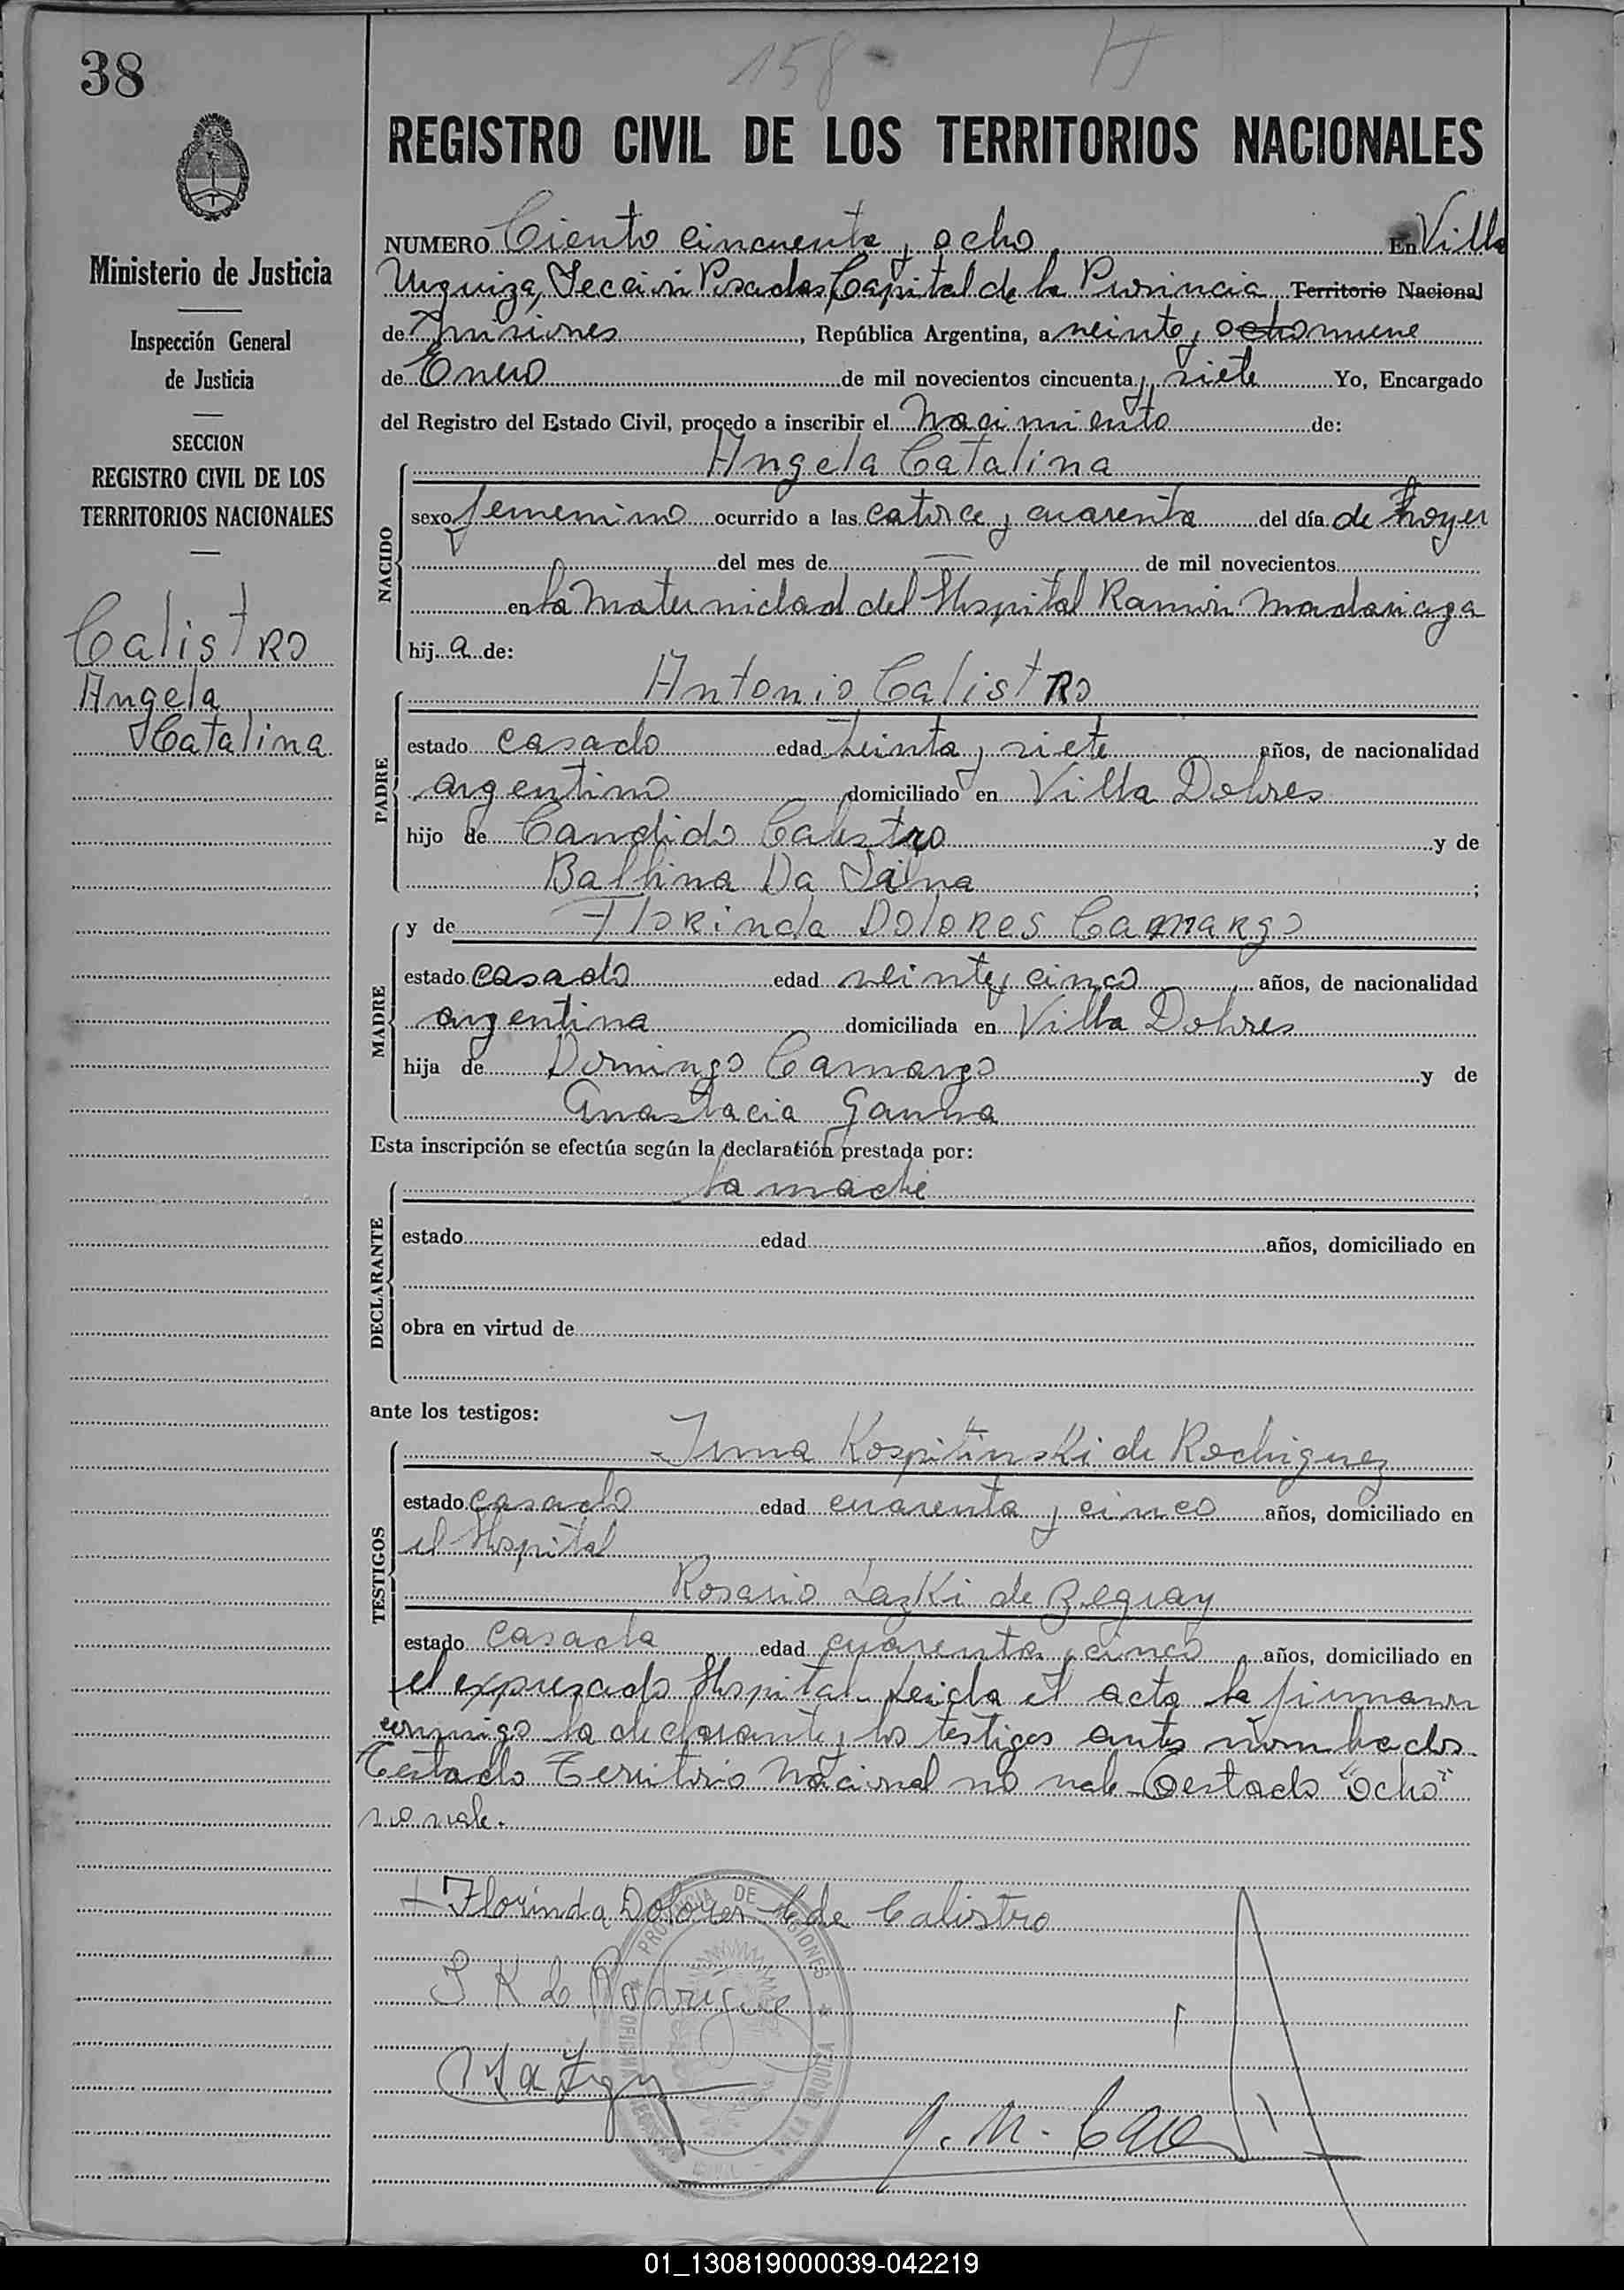 38
158
REGISTRO CIVIL DE LOS TERRITORIOS NACIONALES
Ministerio de Justicia
Inspección General
de Justicia
SECCION
REGISTRO CIVIL DE LOS
TERRITORIOS NACIONALES
Calistro
Angela
Catalina
NUMERO Ciento cincuenta y ocho En Villa
Urquiza, Sección Posadas, Capital de la Provincia Territorio Nacional
de Misiones, República Argentina, a veinte y ocho nueve
de Enero de mil novecientos cincuenta y siete Yo, Encargado
del Registro del Estado Civil, procedo a inscribir el Nacimiento de:
Angela Catalina
NACIDO
sexo femenino ocurrido a las catorce y cuarenta del día de
del mes de — de mil novecientos
en la Maternidad del Hospital Ramón Madariaga
hij a de:
Antonio Calistro
PADRE
estado casado edad treinta y siete años, de nacionalidad
argentino domiciliado en Villa Dolores
hijo de Candido Calistro y de
Balbina Da Silva ;
y de Florinda Dolores Camargo
MADRE
estado casado edad veinte y cinco años, de nacionalidad
argentina domiciliada en Villa Dolores
hija de Domingo Camargo y de
Anastacia
Esta inscripción se efectúa según la declaración prestada por:
la madre
DECLARANTE
estado edad años, domiciliado en
obra en virtud de
ante los testigos:
Irma Kospitinski de Rodriguez
TESTIGOS
estado casado edad cuarenta y cinco años, domiciliado en
el Hospital
Rosario Lazki de
estado casada edad cuarenta y cinco años, domiciliado en
el expresado Hospital. Leida el acta la firmaron
conmigo la declarante y los testigos antes nombrados.
Testado Territorio Nacional no vale. Testado "ocho"
no vale.
Florinda Dolores C de Calistro
I K de Rodrigue
PROVINCIA DE MISIONES
VILLA URQUIZA
01_130819000039-042219